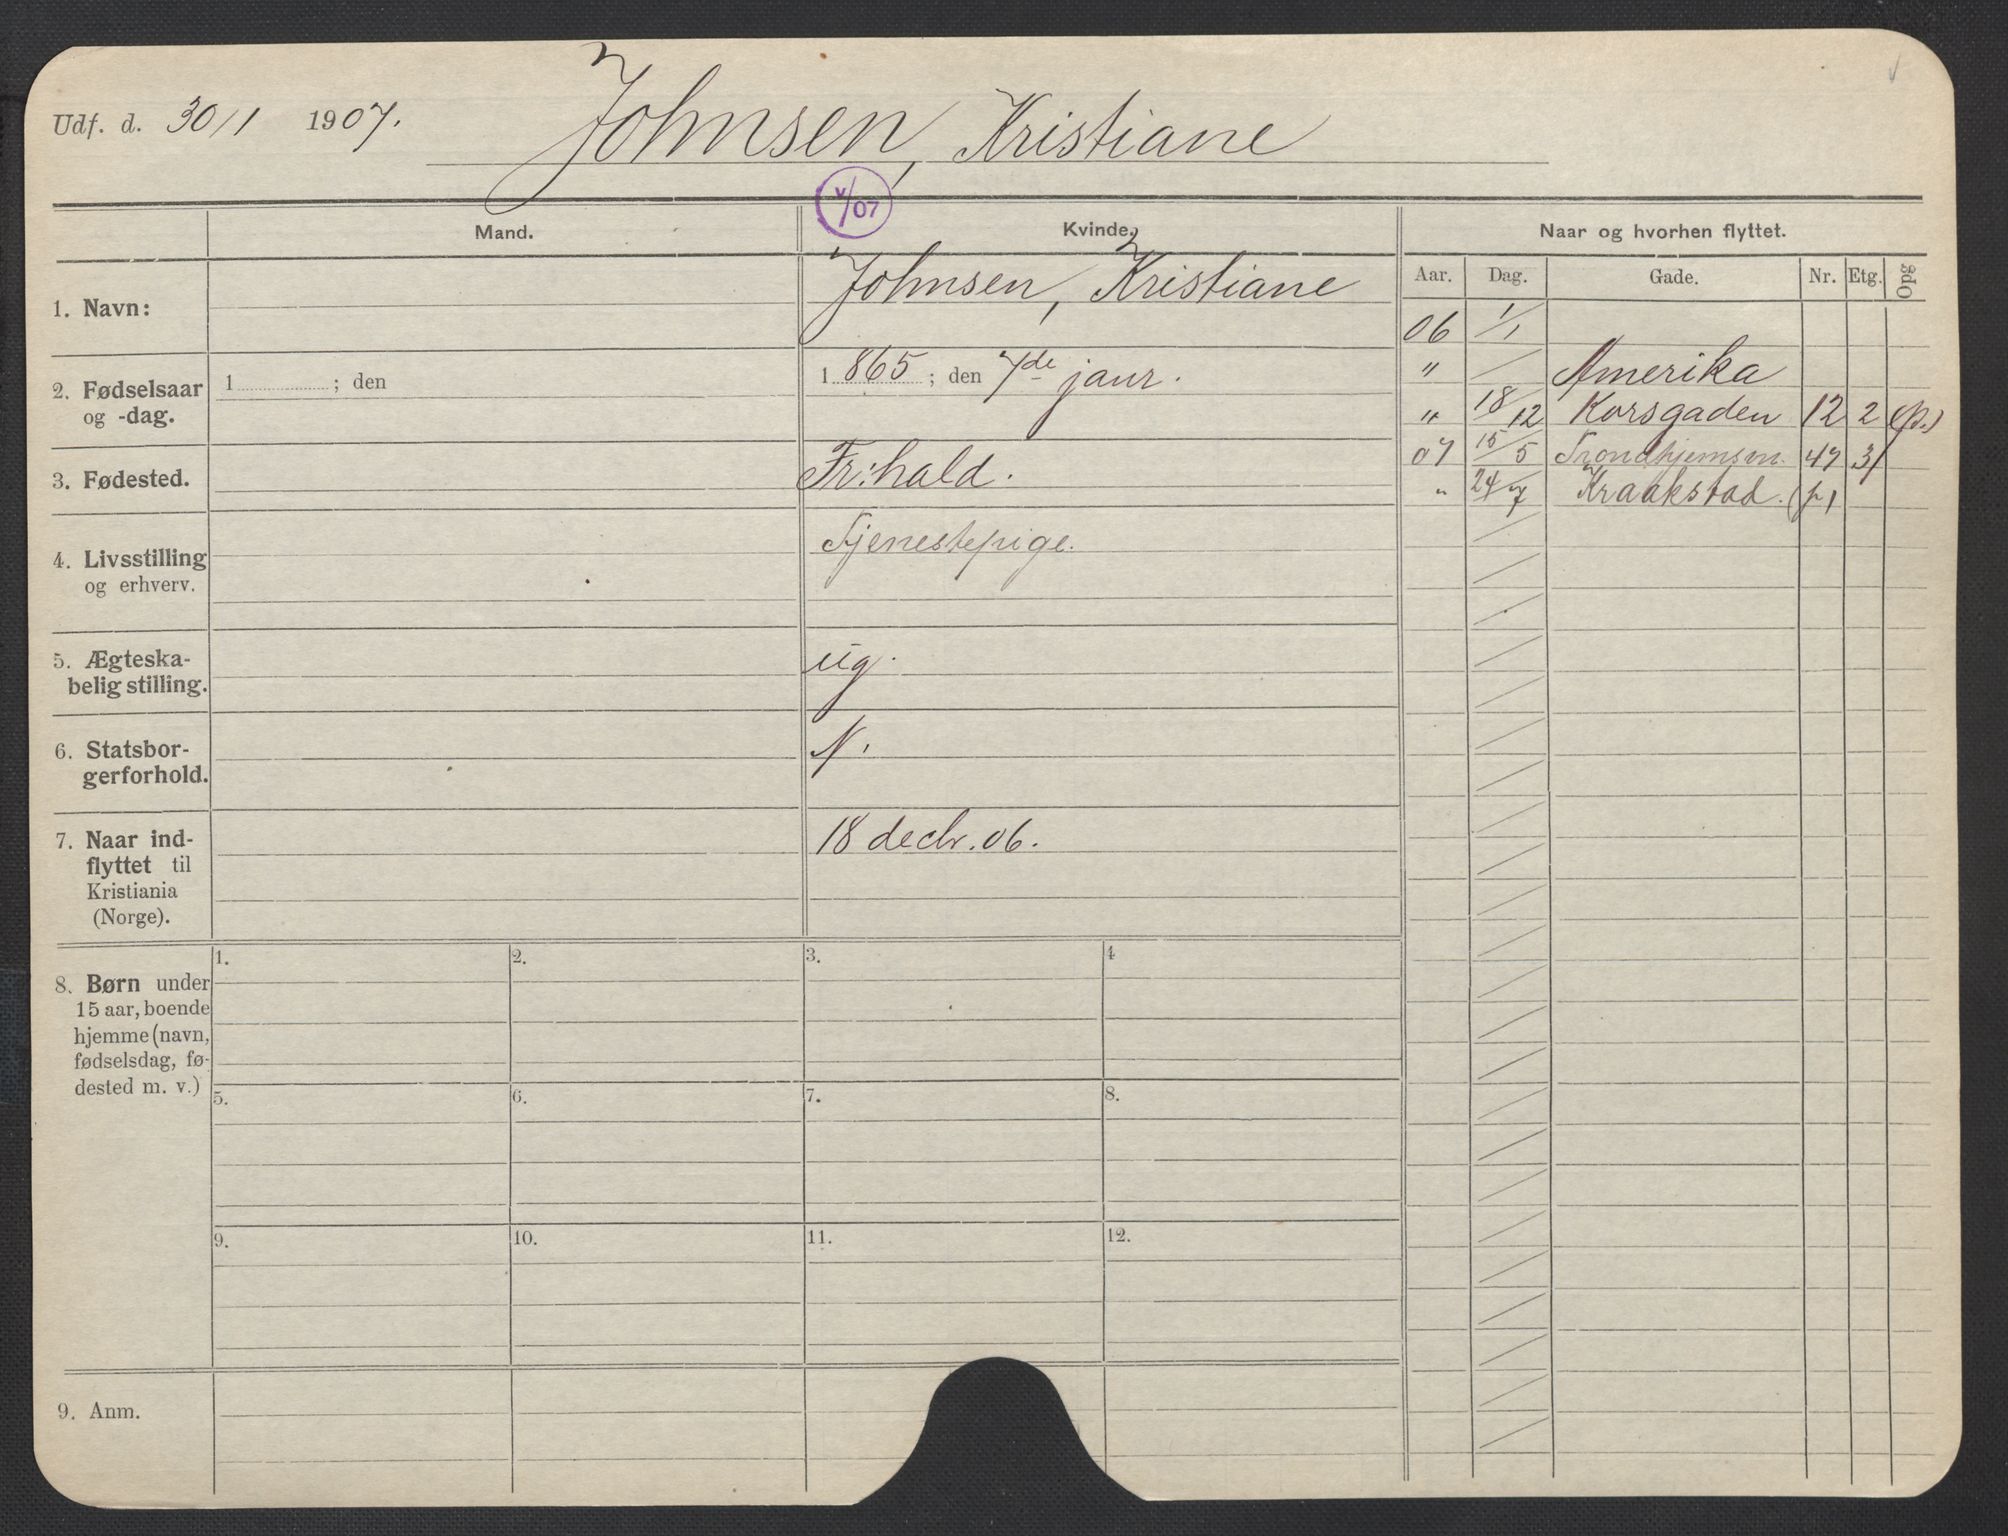 Udf. d. 30/1 1907. Johnsen, Kristiane
V/07
Mand. Kvinde. Naar og hvorhen flyttet.
Aar. Dag. Gade. Nr. Etg. Opg
1. Navn: Johnsen, Kristiane
06 1/1
" Amerika
" 18/12 Korsgaden 12 2 (p.)
07 15/5 Trondhjemsvn. 47 3/
" 24/7 Kraakstad. (p)
2. Fødselsaar og -dag. 1 ; den
1 865 ; den 7de janr.
3. Fødested. Fr:hald.
4. Livsstilling og erhverv. Tjenestepige.
5. Ægteska-
belig stilling. ug.
6. Statsbor-
gerforhold. N.
7. Naar ind-
flyttet til
Kristiania
(Norge).
18 decbr. 06.
8. Børn under
15 aar, boende
hjemme (navn,
fødselsdag, fø-
dested m. v.)
1. 2. 3. 4
5. 6. 7. 8.
9. 10. 11. 12.
9. Anm.